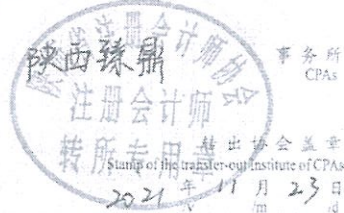 陕西臻鼎 事务所
CPAs
注册会计师
转所专用章
转出协会盖章
Stamp of the transfer-out Institute of CPAs
2021 年 11 月 23 日
y /m /d